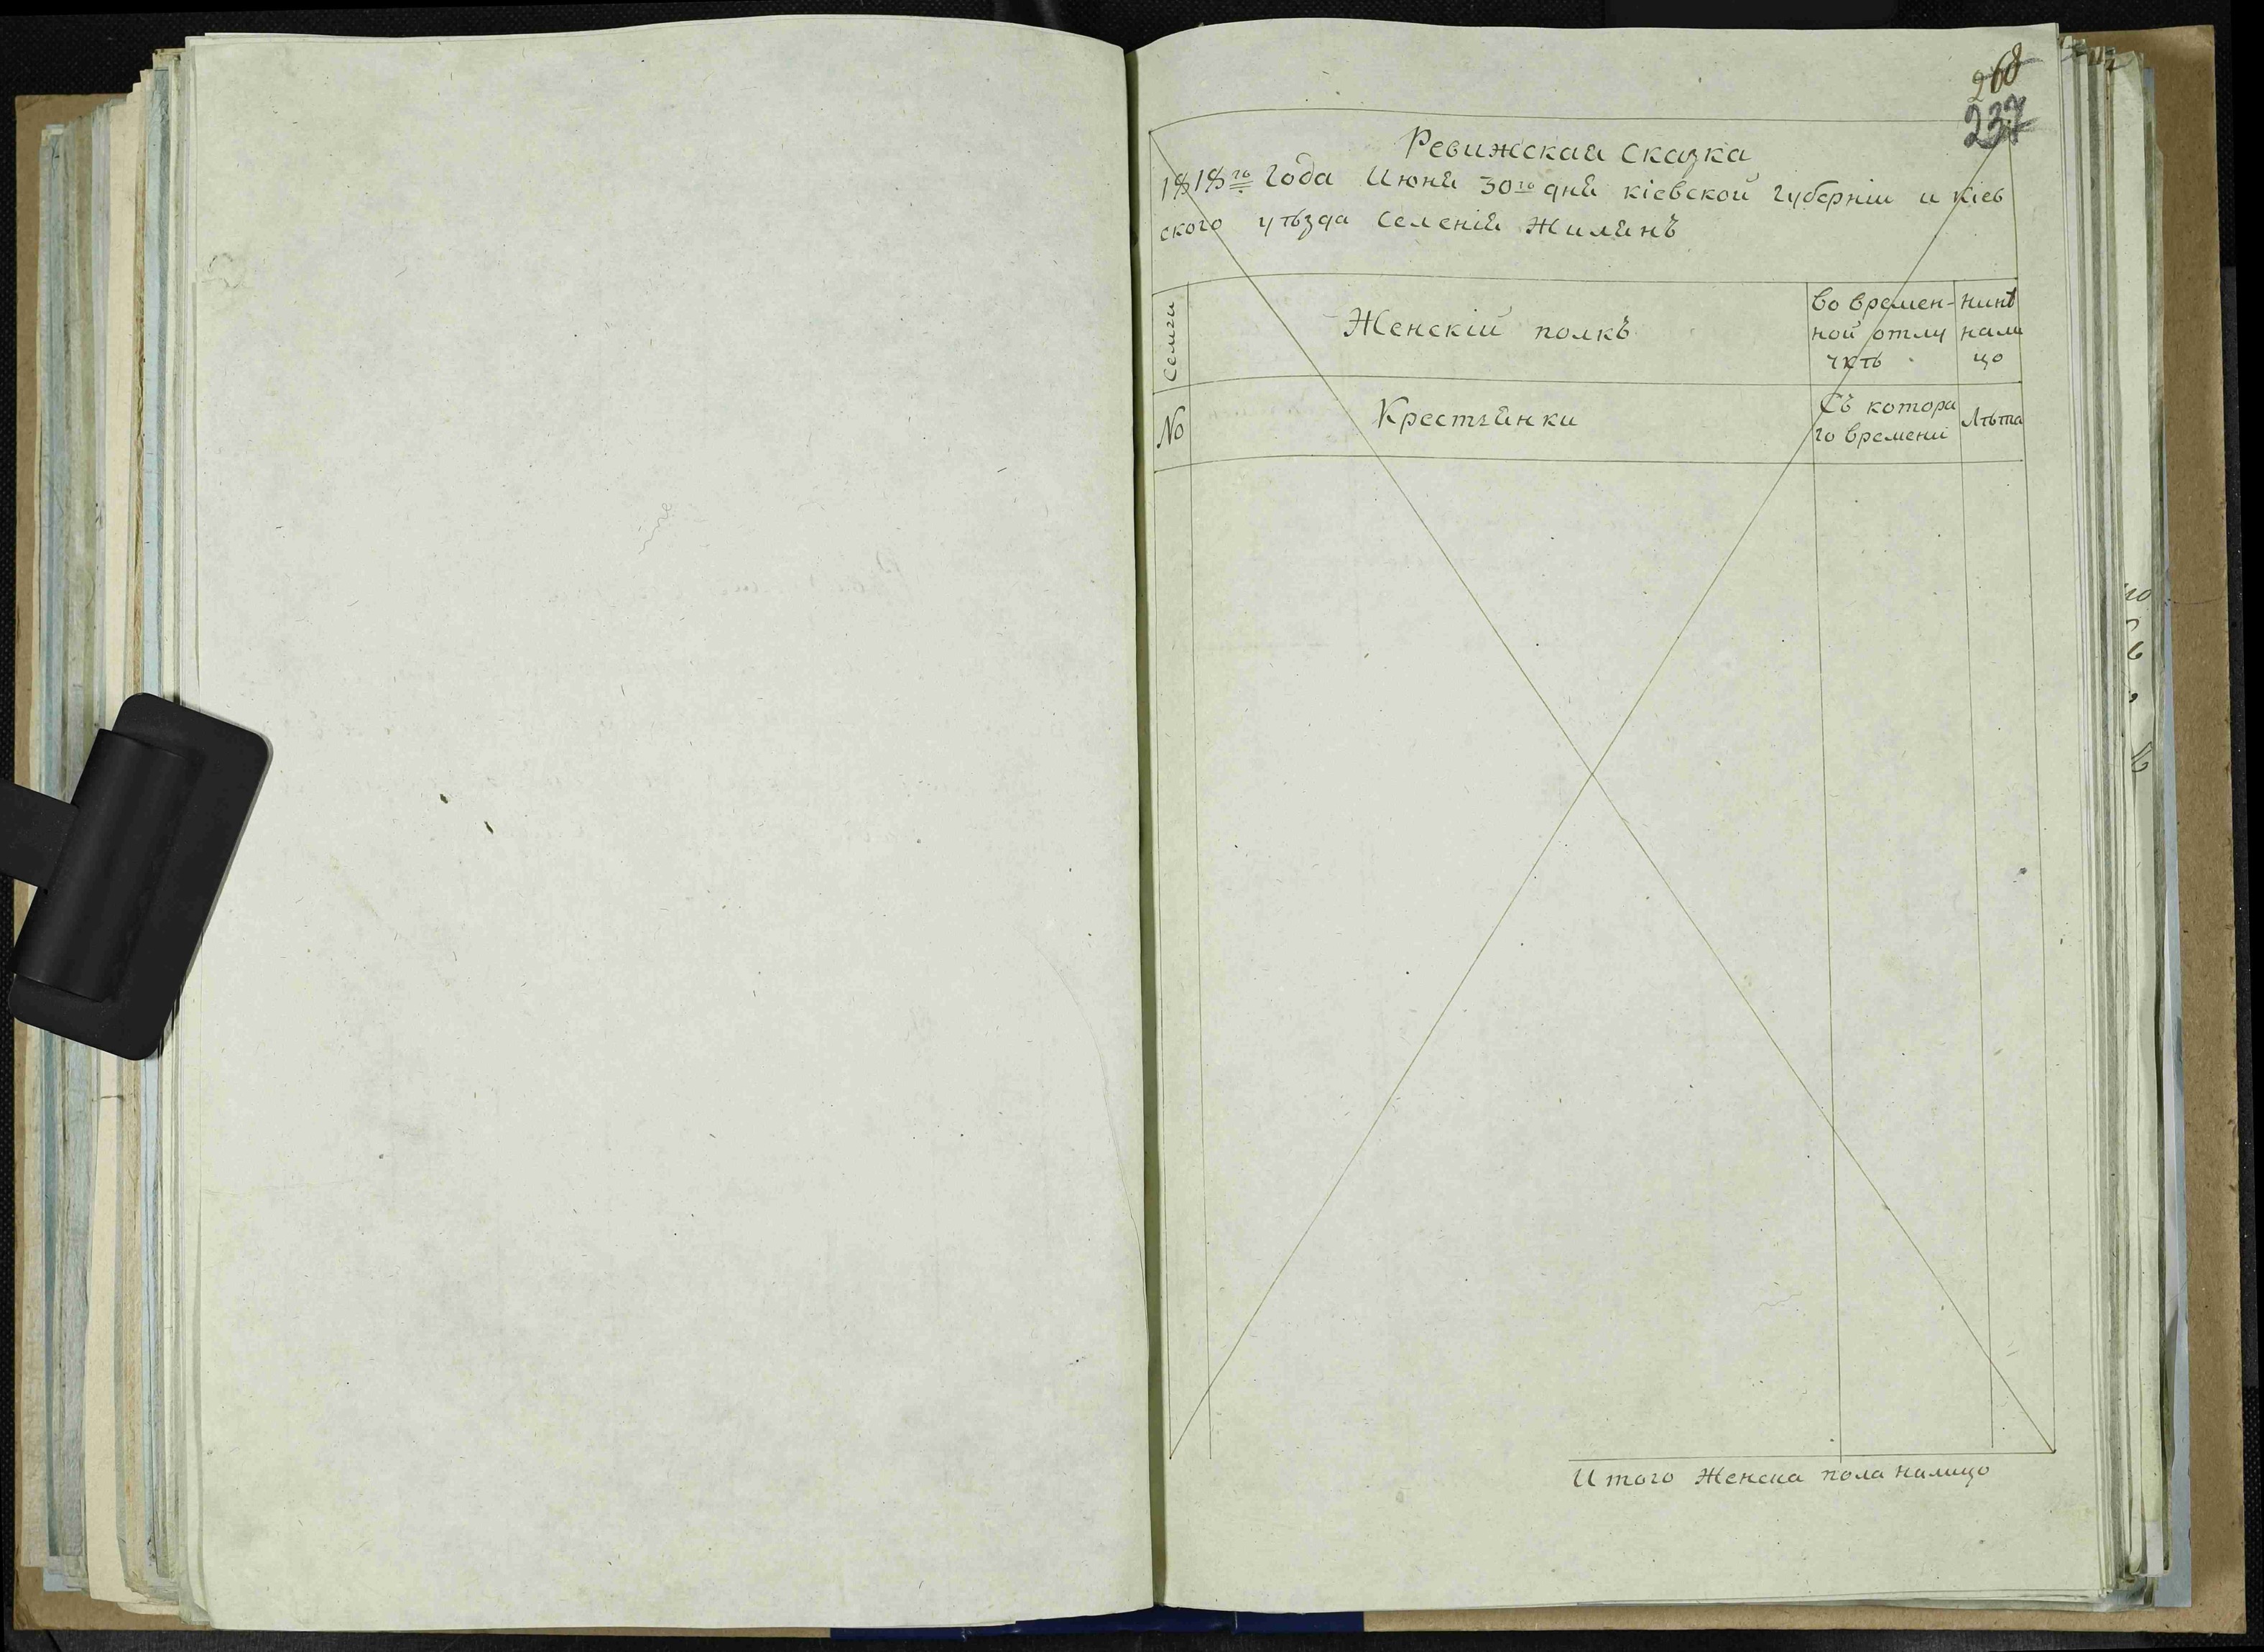 268
237
Ревижская сказка
1818го Года Июня 30го дня кіевской губерніи и Кіев
ского уѣзда Селенія Жилянъ
Семьи
Женскій полкъ
Во времен-
ной отлу
чкѣ
нинѣ
нали
цо
No
Крестьянки
Съ котора
го времени
Лѣта
Итого Женска пола налицо